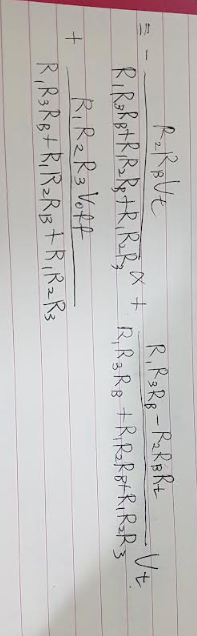 = - R₂R_BVt / (R₁R₃R_B+R₁R₂R_B+R₁R₂R₃) α + (R₁R₃R_B-R₂R_BR_t) / (R₁R₃R_B+R₁R₂R_B+R₁R₂R₃) Vt
+ R₁R₂R₃Voff / (R₁R₃R_B+R₁R₂R_B+R₁R₂R₃)